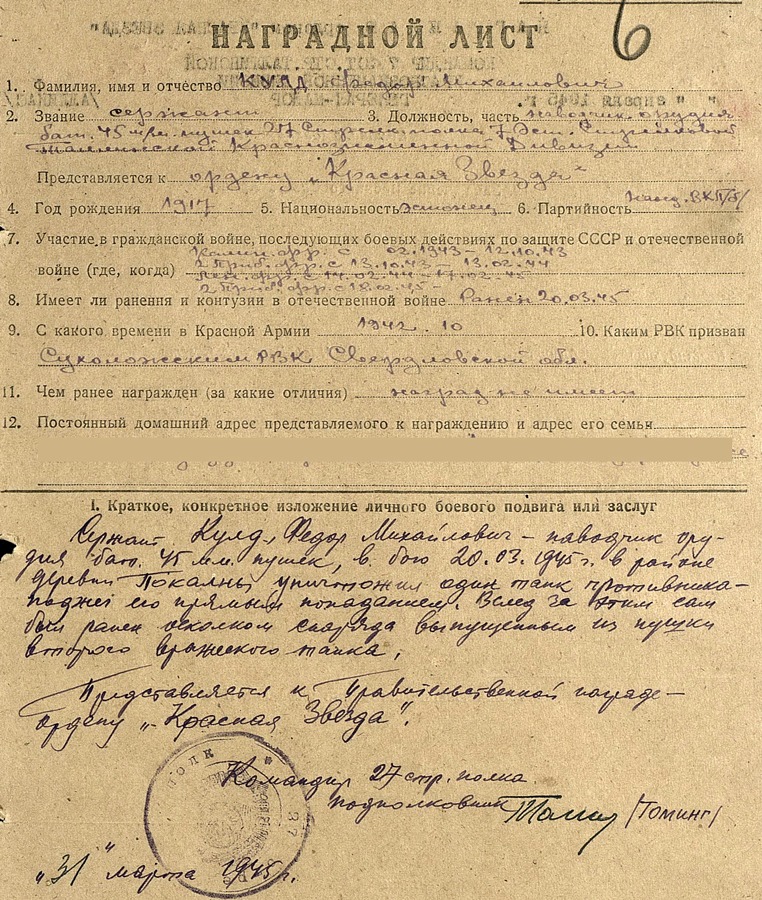 6
НАГРАДНОЙ ЛИСТ
1. Фамилия, имя и отчество Кулд Федор Михайлович
2. Звание сержант 3. Должность, часть наводчик орудия
бат. 45 м/м. пушек 27 Стрелк. полка 7 Эст. Стрелковой
Таллинской Краснознаменной Дивизии
Представляется к ордену „Красная Звезда"
4. Год рождения 1917 5. Национальность эстонец 6. Партийность канд. ВКП/б/
7. Участие в гражданской войне, последующих боевых действиях по защите СССР и отечественной
Калин. фр. с 02.1943 - 12.10.43
войне (где, когда) 2 Приб. фр. с 13.10.43 - 13.02.44
Лен. фр. с 14.02.44 - 17.02.45
2 Приб. фр. с 18.02.45 -
8. Имеет ли ранения и контузии в отечественной войне Ранен 20.03.45
9. С какого времени в Красной Армии 1942. 10 10. Каким РВК призван
Сухоложским РВК Свердловской обл.
11. Чем ранее награжден (за какие отличия) наград не имеет
12. Постоянный домашний адрес представляемого к награждению и адрес его семьи
I. Краткое, конкретное изложение личного боевого подвига или заслуг
Сержант Кулд, Федор Михайлович - наводчик ору-
дия бат. 45 м.м. пушек, в бою 20.03.1945 г. в районе
деревни Покалны уничтожил один танк противника -
поджег его прямым попаданием. Вслед за этим сам
был ранен осколком снаряда выпущенным из пушки
второго вражеского танка.
Представляется к Правительственной награде -
ордену „Красная Звезда".
Командир 27 стр. полка
подполковник (Томинг)
ПОЛК
„31" марта 1945 г.